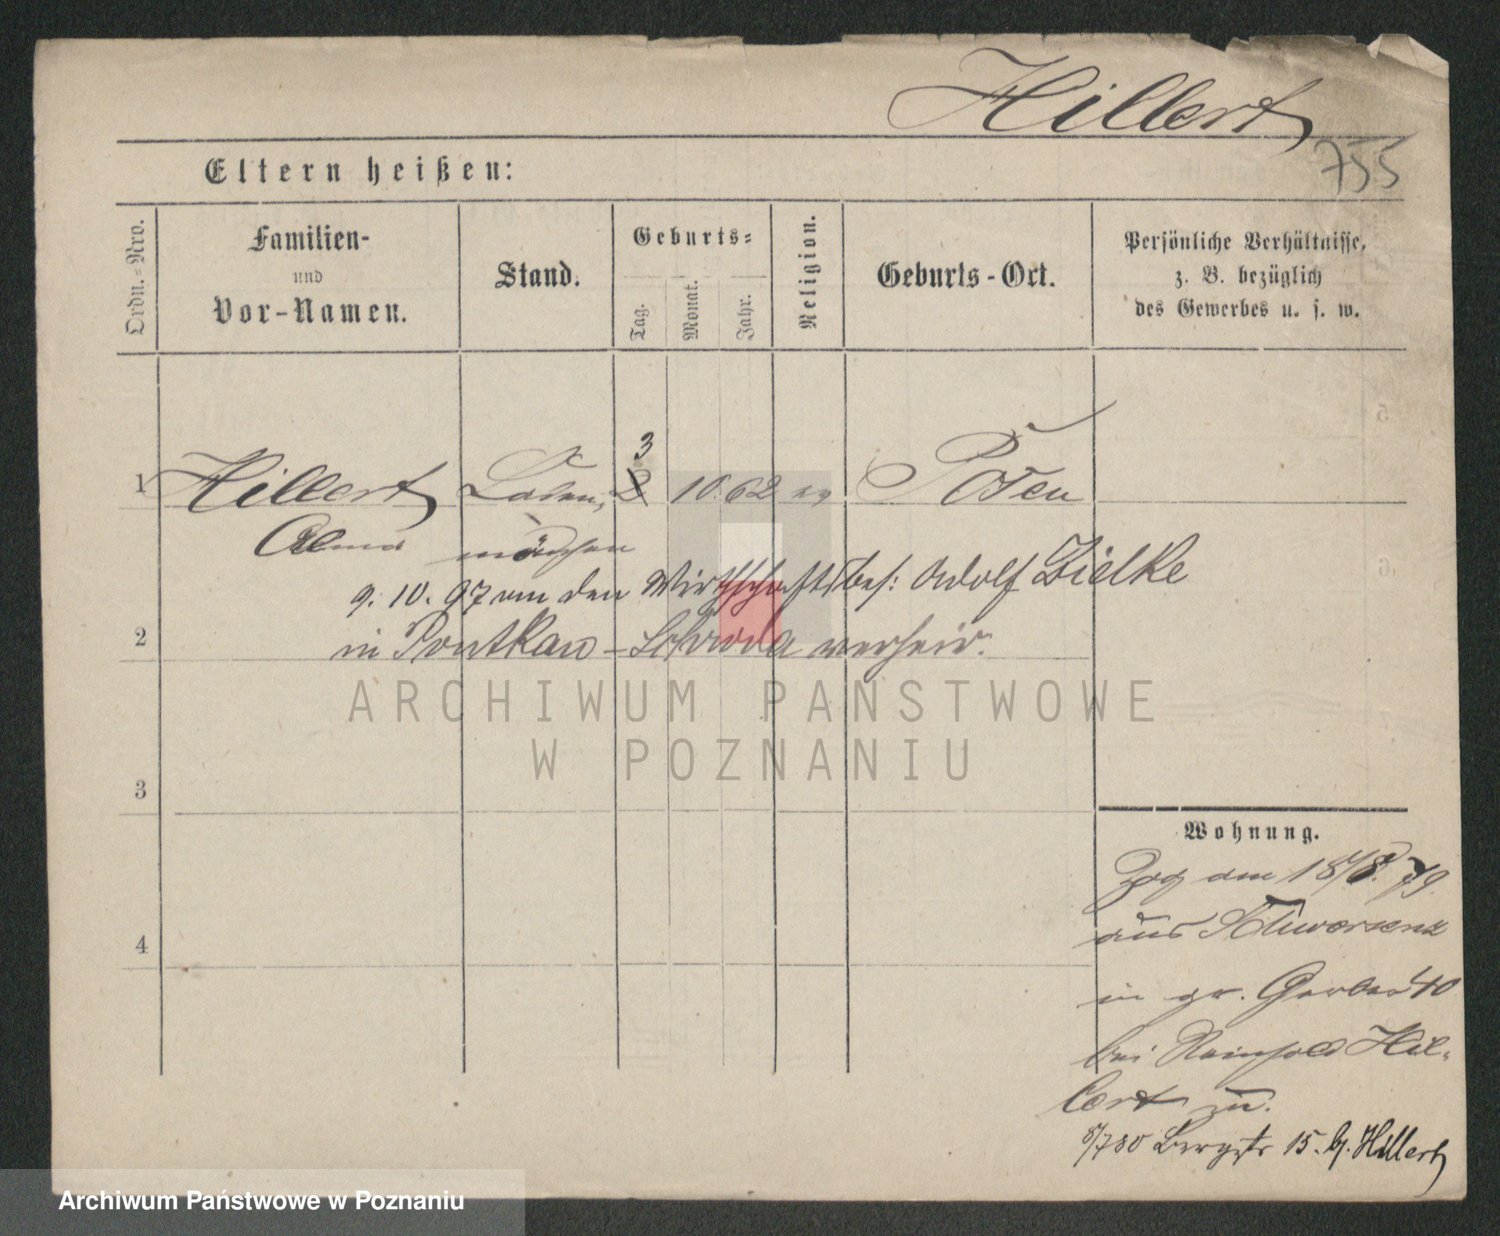 Hillert
755
Eltern heißen:
Ordn.-Nro.
Familien-
und
Vor-Namen.
Stand.
Geburts-
Tag.
Monat.
Jahr.
Religion.
Geburts-Ort.
Persönliche Verhältnisse,
z. B. bezüglich
des Gewerbes u. s. w.
3
1 Hillert Laden, 2 10 62 ev Posen
Alma mädchen
9. 10. 97 am den Wirthschaftsbes: Adolf Zielke
2
in Pontkau - Schroda verheir.
ARCHIWUM PAŃSTWOWE
W POZNANIU
3
Wohnung.
Zog den 18/8. 79.
aus Schwersenz
4
in gr. Gerber 40
bei Reinhold Hil-
lert zu.
8/780 Bergstr 15. b/. Hillert
Archiwum Państwowe w Poznaniu